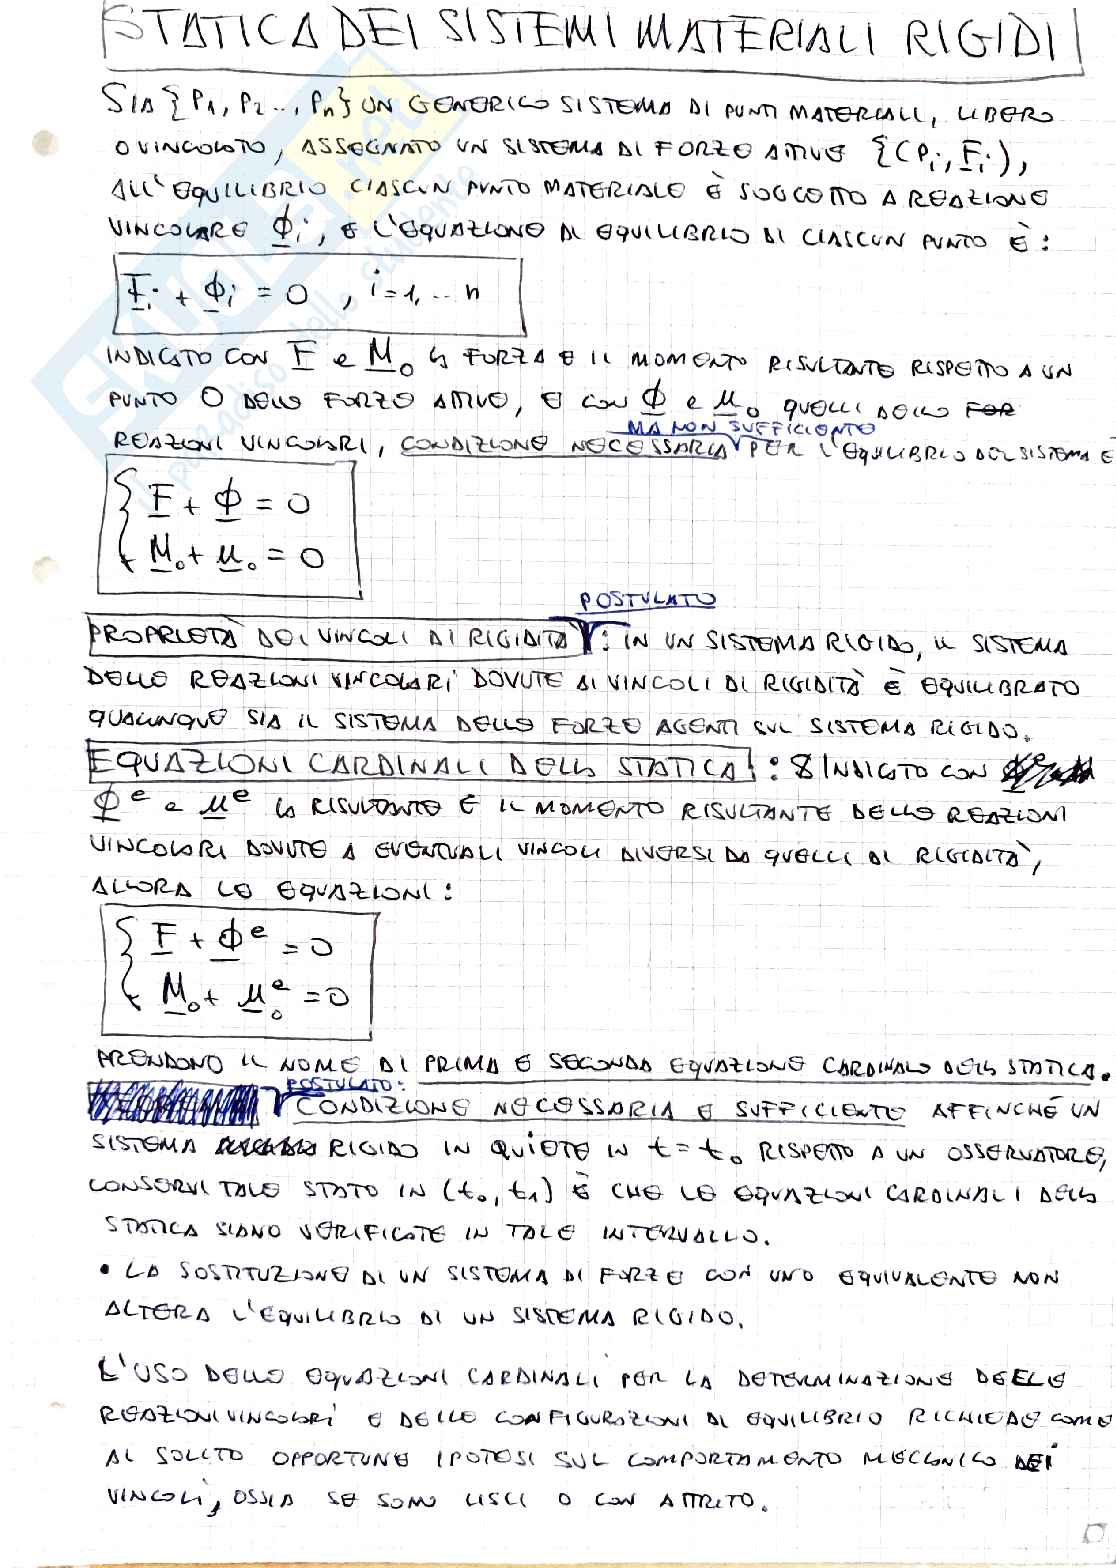 STATICA DEI SISTEMI MATERIALI RIGIDI
SIA {P1, P2 .., Pn} UN GENERICO SISTEMA DI PUNTI MATERIALI, LIBERO
O VINCOLATO, ASSEGNATO UN SISTEMA DI FORZE ATTIVE {(Pi, Fi),
ALL'EQUILIBRIO CIASCUN PUNTO MATERIALE È SOGGETTO A REAZIONE
VINCOLARE Φi, E L'EQUAZIONE DI EQUILIBRIO DI CIASCUN PUNTO È:
Fi + Φi = 0 , i=1, .. n
INDICATO CON F e M0 LA FORZA E IL MOMENTO RISULTANTE RISPETTO A UN
PUNTO O DELLE FORZE ATTIVE, E CON Φ e μ0 QUELLI DELLE FOR
MA NON SUFFICIENTE
REAZIONI VINCOLARI, CONDIZIONE NECESSARIA PER L'EQUILIBRIO DEL SISTEMA È
F + Φ = 0
M0 + μ0 = 0
POSTULATO
PROPRIETÀ DEI VINCOLI DI RIGIDITÀ : IN UN SISTEMA RIGIDO, IL SISTEMA
DELLE REAZIONI VINCOLARI DOVUTE AI VINCOLI DI RIGIDITÀ È EQUILIBRATO
QUALUNQUE SIA IL SISTEMA DELLE FORZE AGENTI SUL SISTEMA RIGIDO.
EQUAZIONI CARDINALI DELLA STATICA : INDICATO CON
Φe e μe LA RISULTANTE E IL MOMENTO RISULTANTE DELLE REAZIONI
VINCOLARI DOVUTE A EVENTUALI VINCOLI DIVERSI DA QUELLI DI RIGIDITÀ,
ALLORA LE EQUAZIONI:
F + Φe = 0
M0 + μ0e = 0
PRENDONO IL NOME DI PRIMA E SECONDA EQUAZIONE CARDINALE DELLA STATICA.
POSTULATO:
CONDIZIONE NECESSARIA E SUFFICIENTE AFFINCHÉ UN
SISTEMA RIGIDO IN QUIETE IN t = t0 RISPETTO A UN OSSERVATORE,
CONSERVI TALE STATO IN (t0, t1) È CHE LE EQUAZIONI CARDINALI DELLA
STATICA SIANO VERIFICATE IN TALE INTERVALLO.
• LA SOSTITUZIONE DI UN SISTEMA DI FORZE CON UNO EQUIVALENTE NON
ALTERA L'EQUILIBRIO DI UN SISTEMA RIGIDO.
L'USO DELLE EQUAZIONI CARDINALI PER LA DETERMINAZIONE DELLE
REAZIONI VINCOLARI E DELLE CONFIGURAZIONI DI EQUILIBRIO RICHIEDE COME
AL SOLITO OPPORTUNE IPOTESI SUL COMPORTAMENTO MECCANICO DEI
VINCOLI, OSSIA SE SONO LISCI O CON ATTRITO.
SKUOLA.net
il paradiso dello studente